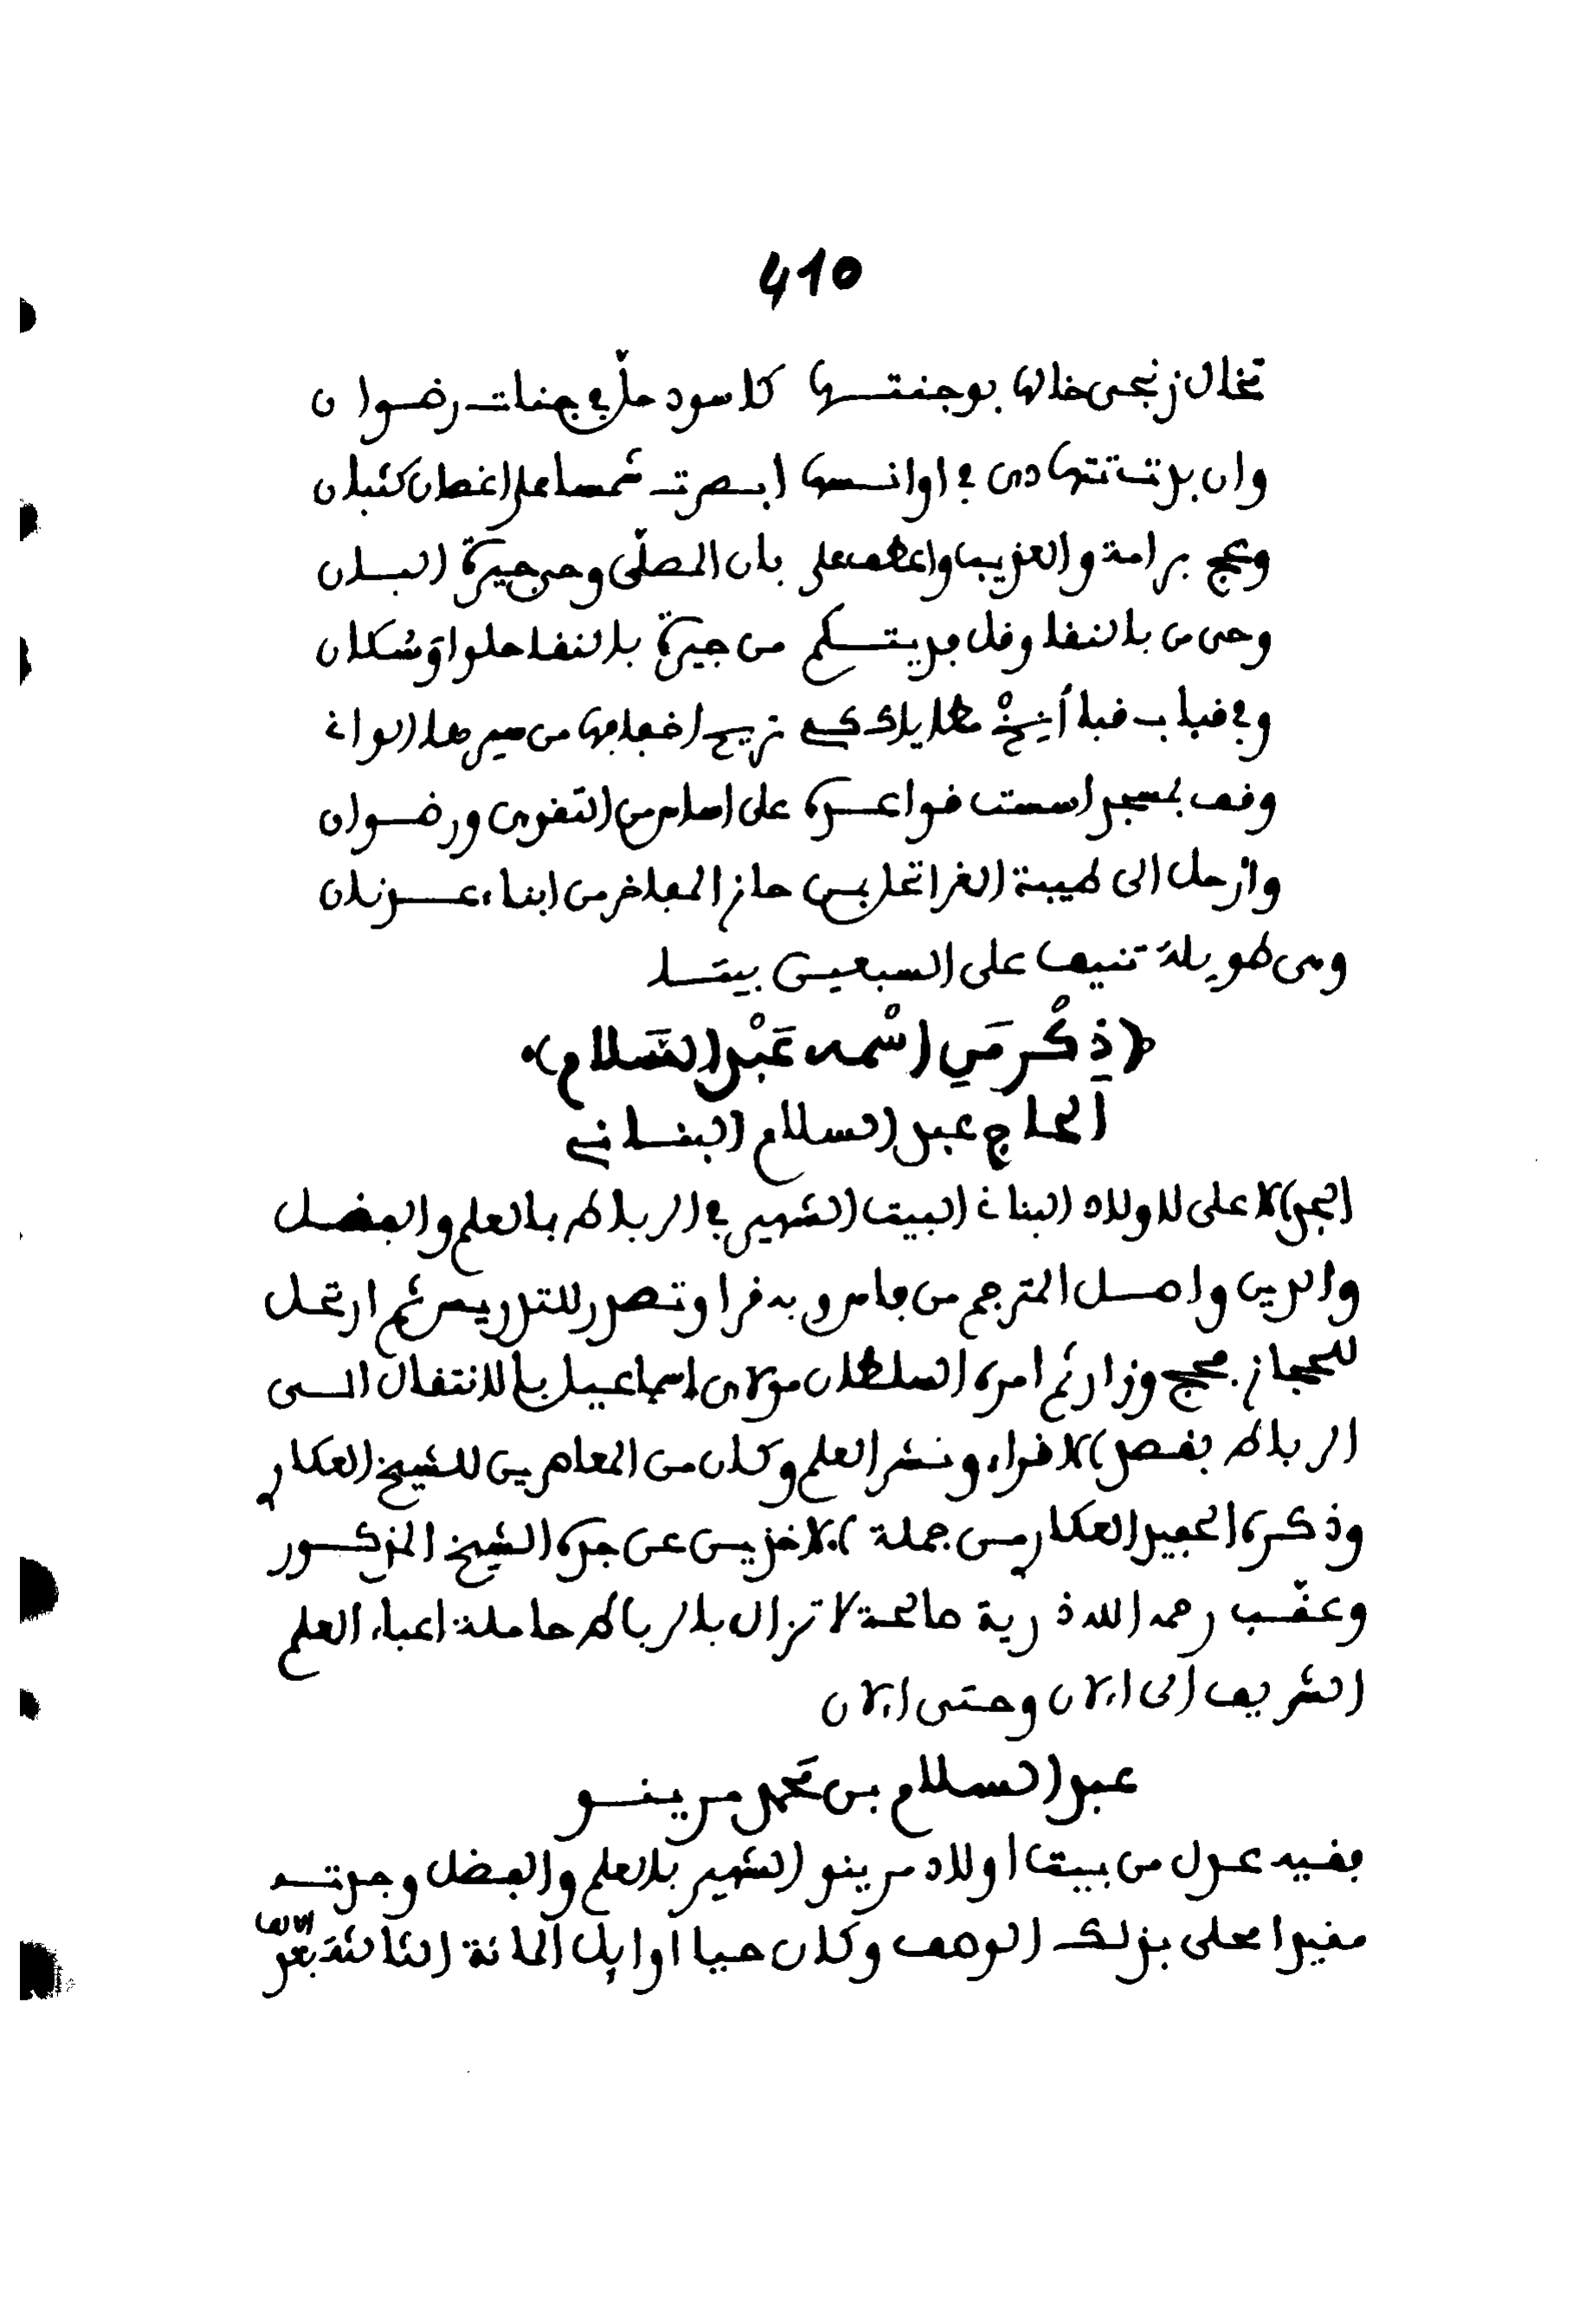 410
تخال زنجى خالها بوجنتها كاسود حل في جنات رضوان
وان بدت تتهادى في اوانسها ابصرت شمسا على اغصان كثبان
وعج برامة والعذيب واعطف على بان المصلّى وحى جيرة البان
وحى من بالنقا وقل فديتكم من جيرة بالنقا حلوا وسُكان
وفي قباب قبا أنِخْ مطاياك كي تريح اخفافها من سيرها الوانى
وقف بمسجد اسست قواعده على اساس من التقوى ورضوان
وارحل الى طيبة الغرا تحل بمن حاز المفاخر من ابناء عدنان
وهى طويلة تنيف على السبعين بيتا
(ذِكْر مَن اسْمه عَبْد السَّلام)
الحاج عبد السلام البنانى
الجد الاعلى لاولاد البنانى البيت الشهير في الرباط بالعلم والفضل
والدين واصل المترجم من فاس وبه قرا وتصدر للتدريس ثم ارتحل
للحجاز فحج وزار ثم امره السلطان مولاى اسماعيل بالانتقال الى
الرباط بقصد الاقراء ونشر العلم وكان من المعاصرين للشيخ العكارى
وذكره الحفيد العكارى من جملة الاخذين عن جده الشيخ المذكور
وعقّب رحمه الله ذرية صالحة لا تزال بالرباط حاملة اعباء العلم
الشريف الى الان وحتى الان
عبد السلام بن محمد مرينو
فقيه عدل من بيت اولاد مرينو الشهير بالعلم والفضل وجدته
مقيدا محلى بذلك الوصف وكان حيا اوايل المائة الثالثة بعد الالف